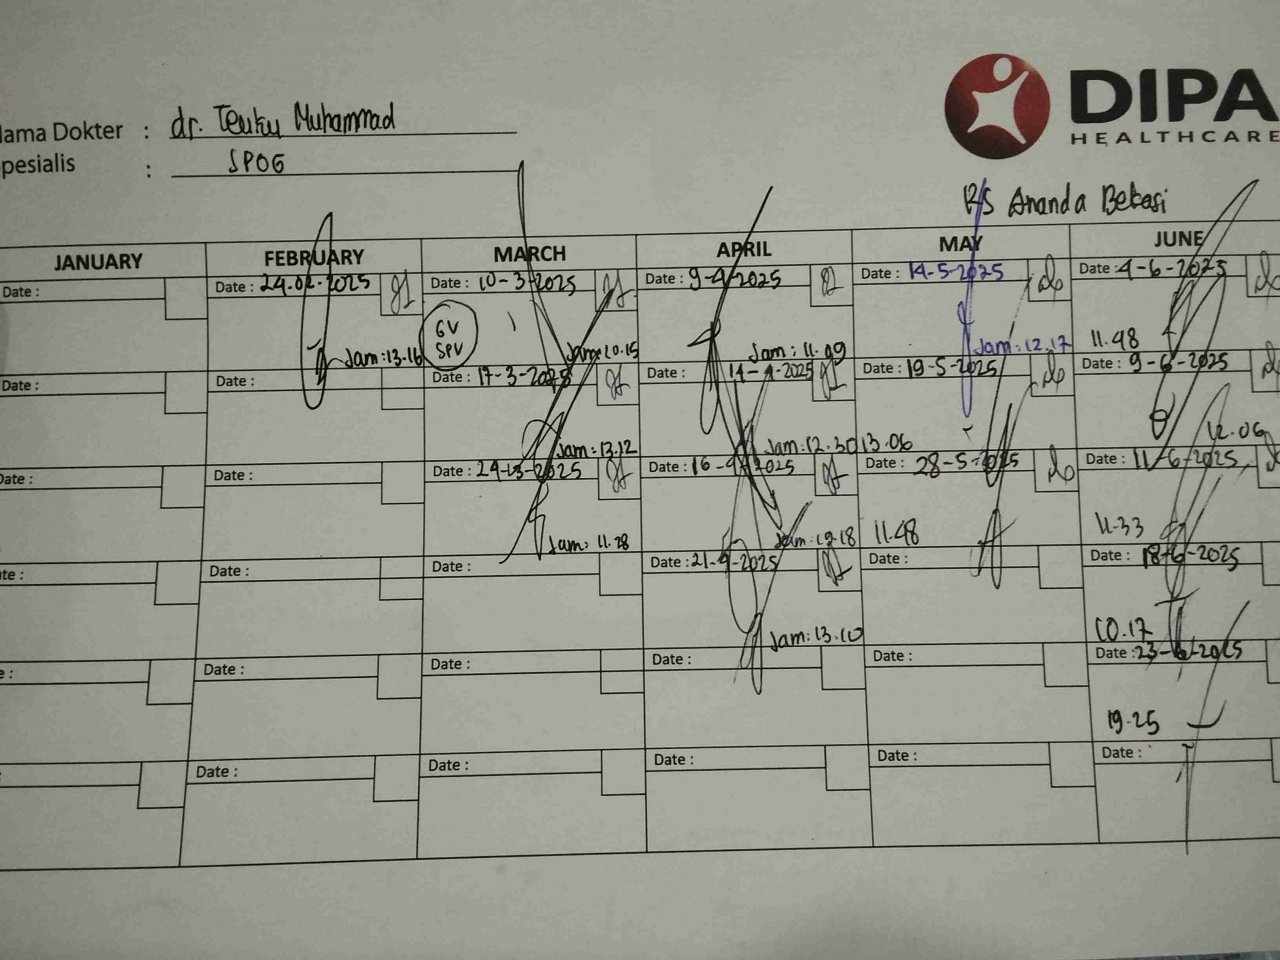 DIPA
HEALTHCARE
ama Dokter : dr. Teuku Muhammad
pesialis : SPOG
RS Ananda Bekasi
JANUARY FEBRUARY MARCH APRIL MAY JUNE
Date : Date : 24.02.2025 Date : 10-3-2025 Date : 9-4-2025 Date : 14-5-2025 Date : 4-6-2025
GV
SPV
Jam: 13.16 Jam: 10.15 Jam: 11.09 Jam: 12.17 11.48
Date : Date : Date : 17-3-2025 Date : 14-4-2025 Date : 19-5-2025 Date : 9-6-2025
Jam: 13.12 Jam: 12.30 13.06 12.06
Date : Date : Date : 24-3-2025 Date : 16-4-2025 Date : 28-5-2025 Date : 11-6-2025
Jam: 11.28 Jam: 12.18 11.48 11.33
te : Date : Date : Date : 21-4-2025 Date : Date : 18-6-2025
Jam: 13.10 10.17
e : Date : Date : Date : Date : Date : 23-6-2025
19.25
Date : Date : Date : Date : Date :